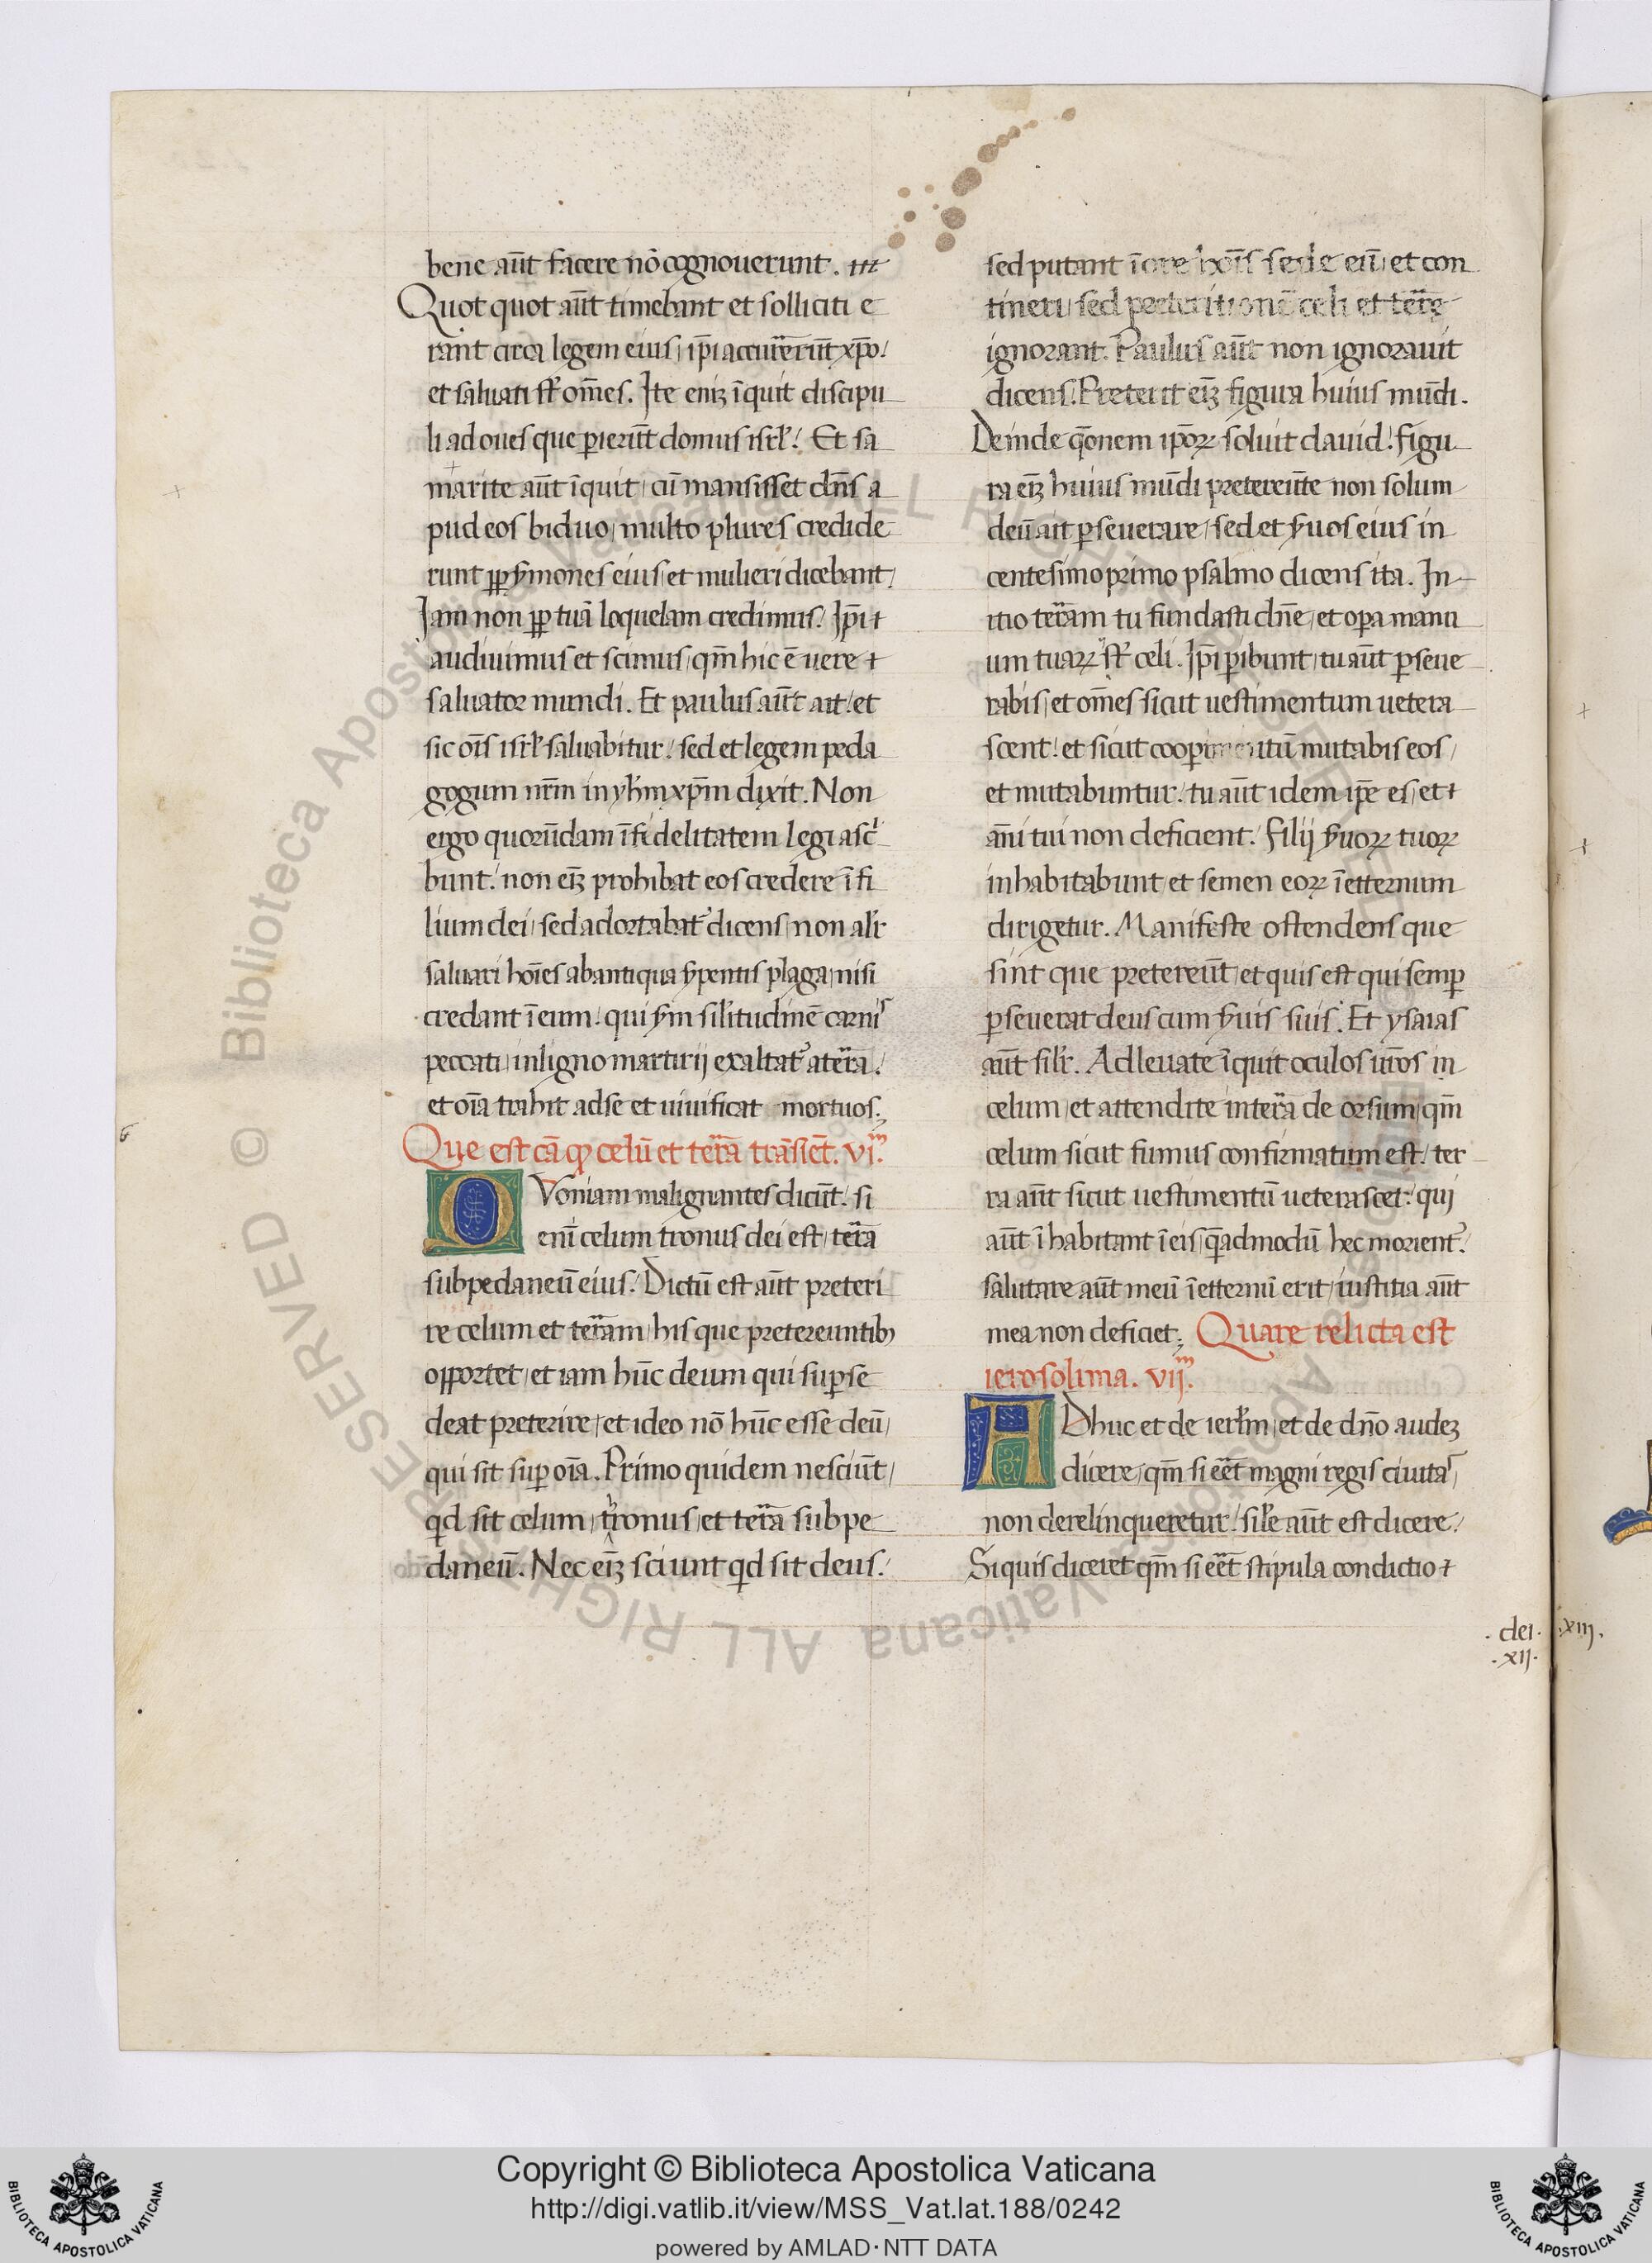 bene aūt facere nō cognouerunt.
Quot quot aūt timebant et solliciti e
rant circa legem eius, ip̄i accurrerūt xp̄o.
et saluati st̄ om̄es. Ite eniʒ īquit discipu
li ad oues que perierūt domus isrl̄. Et sa
marite aūt īquit, cū mansisset dn̄s a
pud eos biduo, multo plures credide
runt ꝓpt s̄mones eius, et mulieri dicebant,
Iam non ꝓpt tuā loquelam credimus. Ip̄i
audiuimus et scimus, qm̄ hic ē uere
saluator mundi. Et paulus aūt ait, et
sic oīs isrl̄ saluabitur, sed et legem peda
gogum nr̄m in yh̄m xp̄m dixit. Non
ergo quorūdam īfidelitatem legi asc'
bunt. non eiʒ prohibat eos credere ī fi
lium dei, sed adortabat' dicens, non alr̄
saluari hoīes ab antiqua s̄pentis plaga, nisi
credant ī eum. qui s̄m silitudinē carnis
peccati, in ligno martirij exaltat' a terra.
et oīa trahit ad se et uiuificat mortuos.
Que est cā qꝫ celū et terrā trāsiēt. vjᵐ.
QVoniam malignantes dicūt. si
eni celum tronus dei est, terra
subpedaneū eius. Dictū est aūt preteri
re celum et terram, his que pretereuntibꝫ
opportet, et iam hūc deum qui sup̱ se
deat preterire, et ideo nō hūc esse deū,
qui sit sup̱ oīa. Primo quidem nesciūt,
qd sit celum, tronus, et terra subpe
daneū. Nec eiʒ sciunt qd sit deus.
sed putant ī ore hoīs sede eū, et con
tineri, sed preteritionē celi et terrę
ignorant. Paulus aūt non ignorauit
dicens. Preterit eiʒ figura huius mūdi.
Deinde qōnem ip̄oꝝ soluit dauid. figu
ra eiʒ huius mūdi pretereūte non solum
deū ait ꝑseuerare, sed et s̄uos eius in
centesimo primo psalmo dicens ita. In
itio terram tu fundasti dn̄e, et oꝑa manu
um tuaꝝ st̄ celi. Ip̄i ꝑibunt, tu aūt ꝑseue
rabis, et om̄es sicut uestimentum uetera
scent. et sicut coopimentū mutabis eos,
et mutabuntur. tu aūt idem ip̄e es, et
āni tui non deficient. filij s̄uoꝝ tuoꝝ
inhabitabunt, et semen eoꝝ ī etternum
dirigetur. Manifeste ostendens que
sint que pretereūt, et quis est qui semꝑ
ꝑseuerat deus cum s̄uis suis. Et ysaias
aūt silr̄. Adleuate īquit oculos ur̄os in
celum, et attendite in terrā de orsum, qm̄
celum sicut fumus confirmatum est. ter
ra aūt sicut uestimentū ueterascet. qui
aūt īhabitant ī eis, q̄admodū hec morient'.
salutare aūt meū ī etternū erit, iustitia aūt
mea non deficiet. Quare relicta est
ierosolima. vijᵐ.
ADhuc et de ierlm̄, et de dn̄o audeʒ
dicere, qm̄ si eēt magni regis ciuitas,
non derelinqueretur. sile aūt est dicere.
Si quis diceret qm̄ si eēt stipula condictio
.dei. .xiij.
.xij.
© Biblioteca Apostolica Vaticana ALL RIGHTS RESERVED
Copyright © Biblioteca Apostolica Vaticana
http://digi.vatlib.it/view/MSS_Vat.lat.188/0242
powered by AMLAD·NTT DATA
BIBLIOTECA APOSTOLICA VATICANA
BIBLIOTECA APOSTOLICA VATICANA